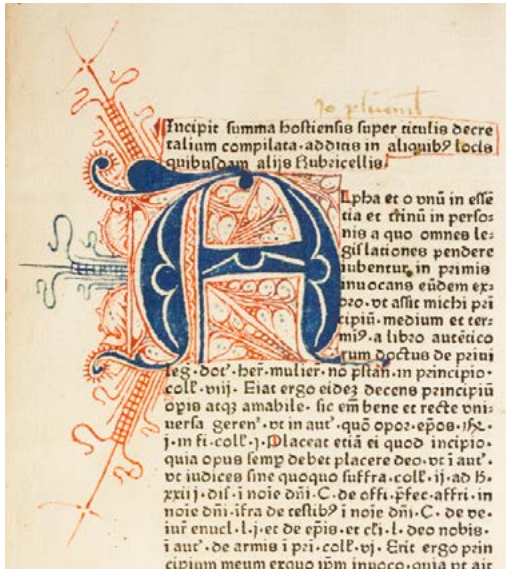 Incipit summa hostiensis super titulis decre
talium compilata·additis in aliquibꝰ locis
quibusdam alijs Rubricellis.
A
lpha et o vnū in essē
tia et trinū in perso⸗
nis a quo omnes le⸗
gislationes pendere
iubentur in primis
inuocans eūdem ex⸗
oro·vt assit michi pri
cipiū·medium et ter⸗
miꝰ·a libro autētico
rum doctus de priui
leg·doc̄·her̄·mulier·no p̄stan̄·in principio·
coll̄·viij·Eiat ergo eidez decens principiū
opis atqꝫ amabile·sic em̄ bene et recte vni⸗
uersa geren̄·vt in aut̄·quō opoꝛ·ep̄os·
j·in fi·coll̄·j·Placeat etiā ei quod incipio·
quia opus semꝑ debet placere deo·vt i aut̄·
vt iudices sine quoquo suffra·coll̄·ij·ad
xxiij·dis·i noie dn̄i·C·de offi·p̄fec·affri·in
noie dn̄i·ifra de testibꝰ i noie dn̄i·C·de ve⸗
iur̄ enucl·l·j·et de ep̄is·et cl̄i·l·deo nobis·
i aut̄·de armis i pri·coll̄·vj·Erit ergo prin
cipium meum exquo ip̄m inuoco·quia vt ait